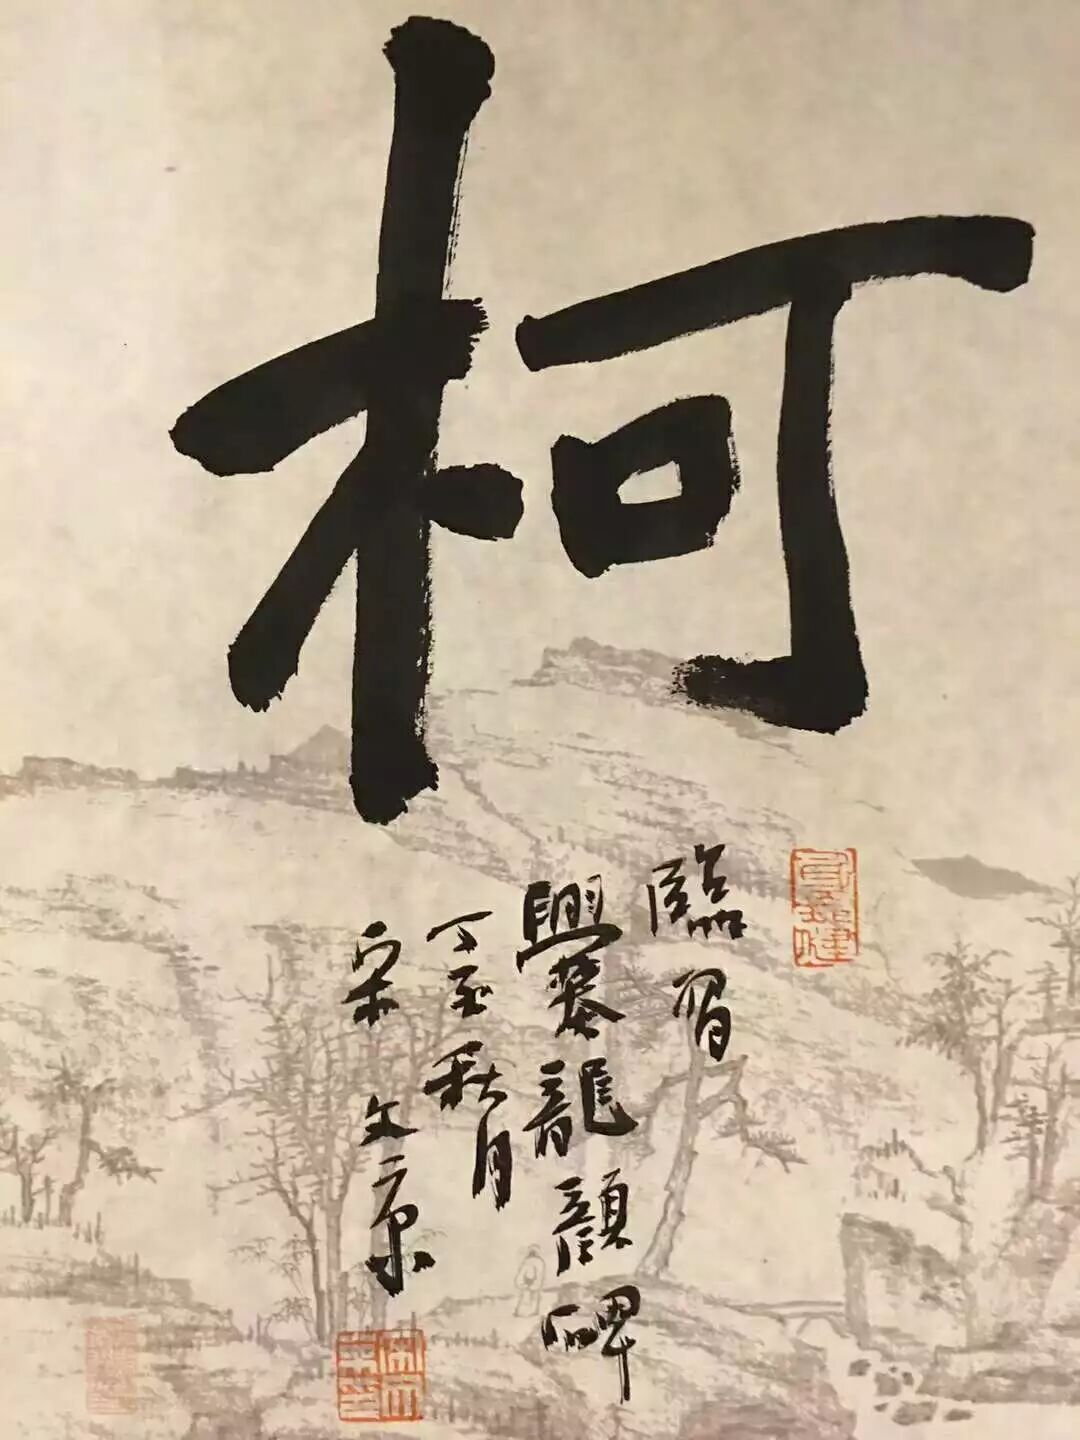 柯
臨習
爨龍顏碑
丁酉秋月
宋文京